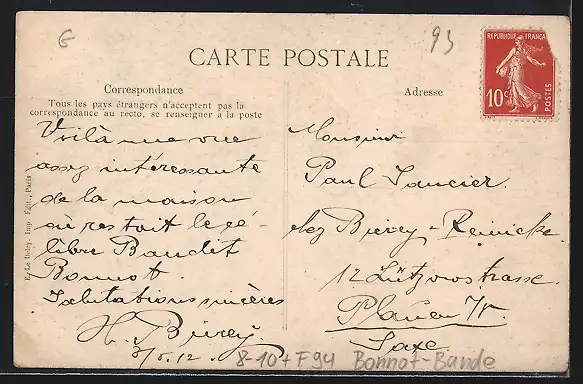 G
95
CARTE POSTALE
REPUBLIQUE FRANÇA
10c
POSTES
Correspondance
Adresse
Tous les pays étrangers n'acceptent pas la
correspondance au recto, se renseigner à la poste
E. Le Deley, Imp. Édit., Paris
Voilà une vue
assez intéressante
de la maison
où restait le cé-
lèbre Bandit
Bonnot.
Salutations sincères
H.
12.
Monsieur
Paul Saucier.
chez Bievey-Reinicke
12 Lützowstrasse.
Plauen
Saxe
8-10+F94 Bonnot-Bande